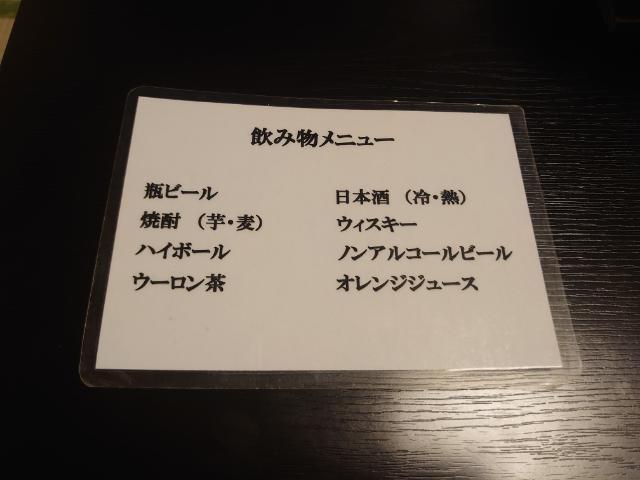 飲み物メニュー
瓶ビール
焼酎（芋・麦）
ハイボール
ウーロン茶
日本酒（冷・熱）
ウィスキー
ノンアルコールビール
オレンジジュース